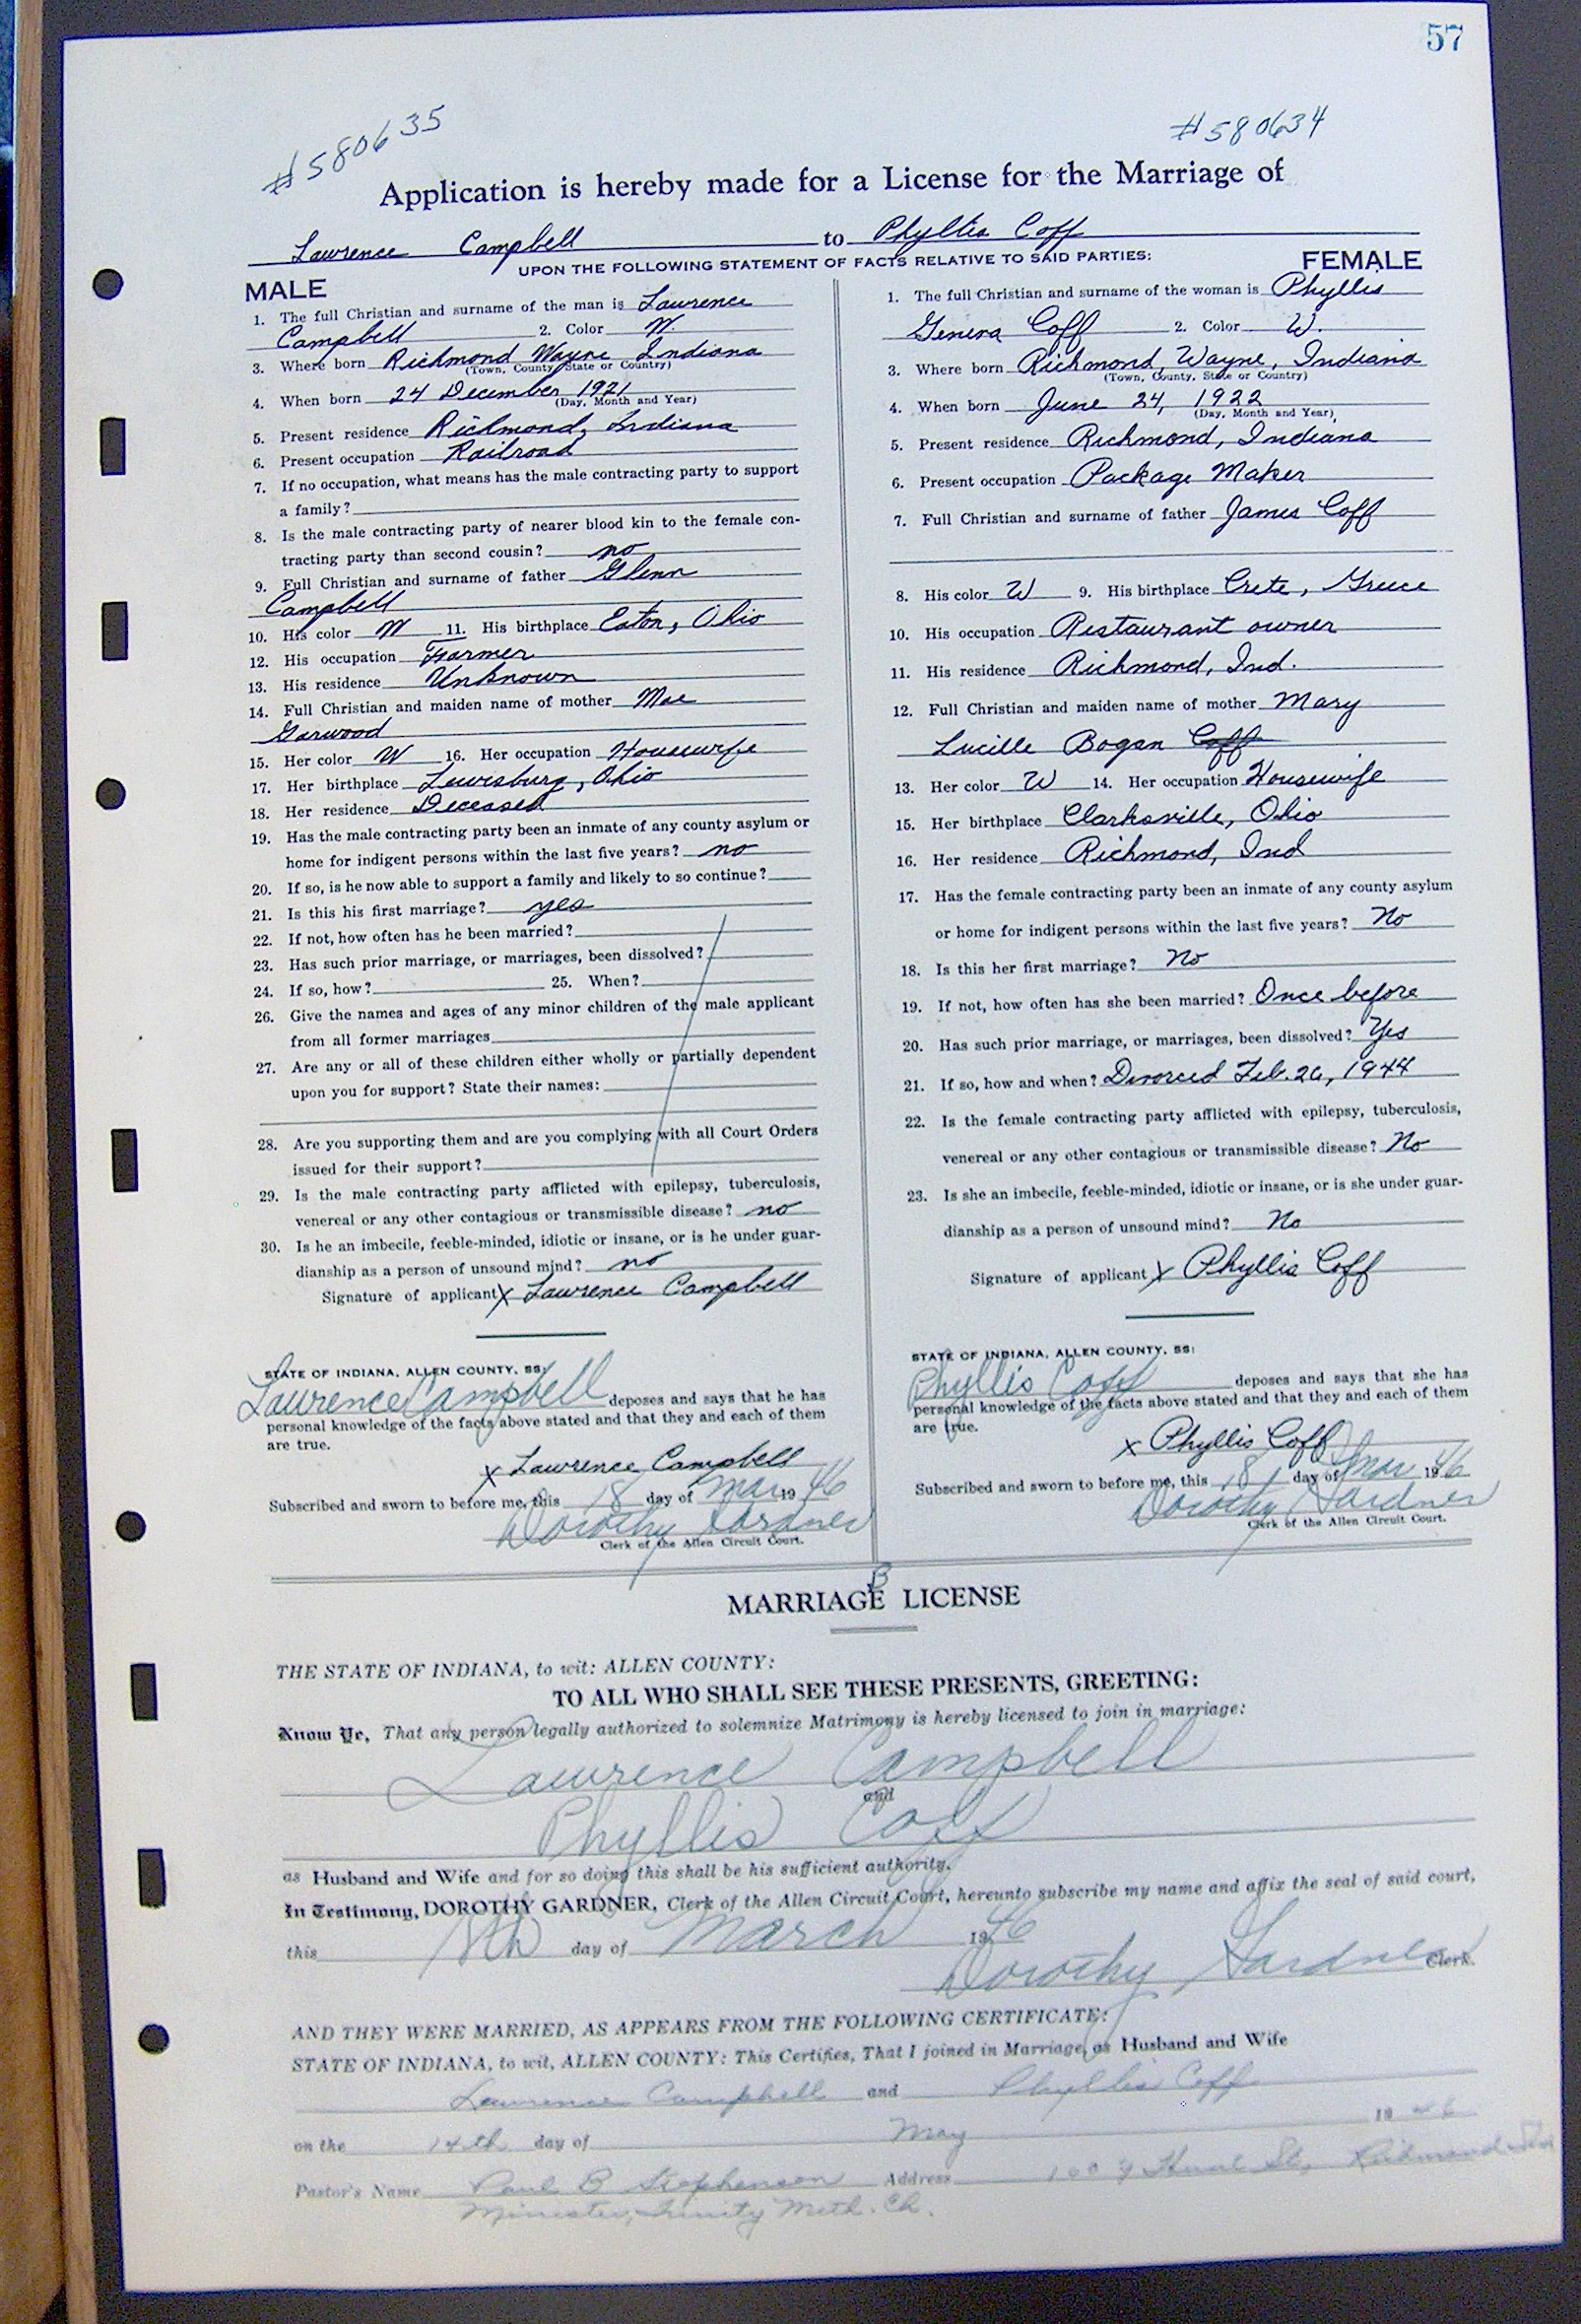 57
#580635
#580634
Application is hereby made for a License for the Marriage of
Lawrence Campbell to Phyllis Coff
UPON THE FOLLOWING STATEMENT OF FACTS RELATIVE TO SAID PARTIES:
MALE
1. The full Christian and surname of the man is Lawrence
Campbell 2. Color W.
3. Where born Richmond Wayne Indiana
(Town, County, State or Country)
4. When born 24 December 1921
(Day, Month and Year)
5. Present residence Richmond, Indiana
6. Present occupation Railroad
7. If no occupation, what means has the male contracting party to support
a family?
8. Is the male contracting party of nearer blood kin to the female con-
tracting party than second cousin? no
9. Full Christian and surname of father Glenn
Campbell
10. His color W 11. His birthplace Eaton, Ohio
12. His occupation Farmer
13. His residence Unknown
14. Full Christian and maiden name of mother Mae
Garwood
15. Her color W 16. Her occupation Housewife
17. Her birthplace Lewisburg, Ohio
18. Her residence Deceased
19. Has the male contracting party been an inmate of any county asylum or
home for indigent persons within the last five years? no
20. If so, is he now able to support a family and likely to so continue?
21. Is this his first marriage? yes
22. If not, how often has he been married?
23. Has such prior marriage, or marriages, been dissolved?
24. If so, how? 25. When?
26. Give the names and ages of any minor children of the male applicant
from all former marriages
27. Are any or all of these children either wholly or partially dependent
upon you for support? State their names:
28. Are you supporting them and are you complying with all Court Orders
issued for their support?
29. Is the male contracting party afflicted with epilepsy, tuberculosis,
venereal or any other contagious or transmissible disease? no
30. Is he an imbecile, feeble-minded, idiotic or insane, or is he under guar-
dianship as a person of unsound mind? no
Signature of applicant X Lawrence Campbell
STATE OF INDIANA, ALLEN COUNTY, SS:
Lawrence Campbell deposes and says that he has
personal knowledge of the facts above stated and that they and each of them
are true.
X Lawrence Campbell
Subscribed and sworn to before me, this 18 day of Mar 1946
Dorothy Gardner
Clerk of the Allen Circuit Court.
FEMALE
1. The full Christian and surname of the woman is Phyllis
Geneva Coff 2. Color W.
3. Where born Richmond, Wayne, Indiana
(Town, County, State or Country)
4. When born June 24, 1922
(Day, Month and Year)
5. Present residence Richmond, Indiana
6. Present occupation Package Maker
7. Full Christian and surname of father James Coff
8. His color W 9. His birthplace Crete, Greece
10. His occupation Restaurant owner
11. His residence Richmond, Ind.
12. Full Christian and maiden name of mother Mary
Lucille Bogan Coff
13. Her color W 14. Her occupation Housewife
15. Her birthplace Clarksville, Ohio
16. Her residence Richmond, Ind
17. Has the female contracting party been an inmate of any county asylum
or home for indigent persons within the last five years? No
18. Is this her first marriage? No
19. If not, how often has she been married? Once before
20. Has such prior marriage, or marriages, been dissolved? Yes
21. If so, how and when? Divorced Feb. 26, 1944
22. Is the female contracting party afflicted with epilepsy, tuberculosis,
venereal or any other contagious or transmissible disease? No
23. Is she an imbecile, feeble-minded, idiotic or insane, or is she under guar-
dianship as a person of unsound mind? No
Signature of applicant X Phyllis Coff
STATE OF INDIANA, ALLEN COUNTY, SS:
Phyllis Coff deposes and says that she has
personal knowledge of the facts above stated and that they and each of them
are true.
X Phyllis Coff
Subscribed and sworn to before me, this 18 day of Mar 1946
Dorothy Gardner
Clerk of the Allen Circuit Court.
B
MARRIAGE LICENSE
THE STATE OF INDIANA, to wit: ALLEN COUNTY:
TO ALL WHO SHALL SEE THESE PRESENTS, GREETING:
Know Ye, That any person legally authorized to solemnize Matrimony is hereby licensed to join in marriage:
Lawrence Campbell
and
Phyllis Coff
as Husband and Wife and for so doing this shall be his sufficient authority.
In Testimony, DOROTHY GARDNER, Clerk of the Allen Circuit Court, hereunto subscribe my name and affix the seal of said court,
this 18th day of March 1946
Dorothy Gardner Clerk.
AND THEY WERE MARRIED, AS APPEARS FROM THE FOLLOWING CERTIFICATE:
STATE OF INDIANA, to wit, ALLEN COUNTY: This Certifies, That I joined in Marriage, as Husband and Wife
Lawrence Campbell and Phyllis Coff
on the 14th day of May 1946
Pastor's Name Paul B Stephenson Address St, Richmond
Minister, Trinity Meth. Ch.